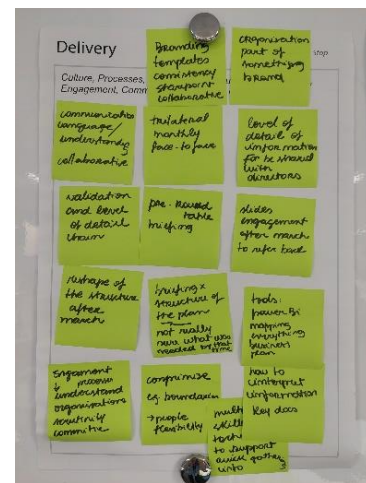 Delivery
Culture, Processes,
Engagement, Comm
Branding
templates
consistency
sharepoint
collaborative
organisation
part of
something
brand
communication
language/
understanding
collaborative
trilateral
monthly
face-to-face
level of
detail of
information
for be shared
with
directors
validation
and level
of detail
chain
pre-round
table
briefing
slides
engagement
after march
to refer back
reshape of
the structure
after
march
briefing x
structure of
the plan
not really
sure what was
needed by that time
tools:
power Bi
mapping
everything
business
plan
Engament
& process
understand
organisations
scrutiny
commitee
compromise
eg. boundaries
→ people
flexibility
how to
interpret
information
key docs
skills
to support
quick
info